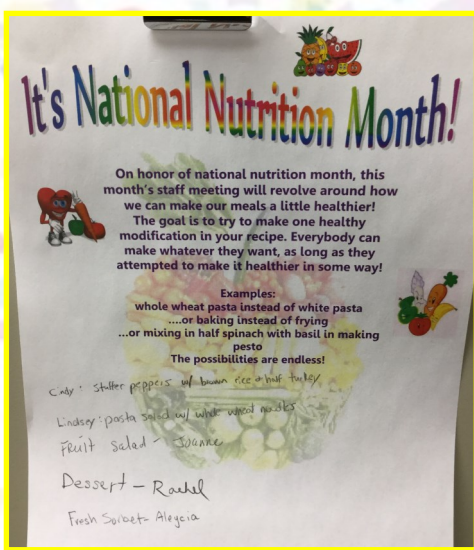 It's National Nutrition Month!
On honor of national nutrition month, this
month's staff meeting will revolve around how
we can make our meals a little healthier!
The goal is to try to make one healthy
modification in your recipe. Everybody can
make whatever they want, as long as they
attempted to make it healthier in some way!
Examples:
whole wheat pasta instead of white pasta
....or baking instead of frying
...or mixing in half spinach with basil in making
pesto
The possibilities are endless!
Cindy: Stuffer peppers w/ brown rice + half turkey
Lindsey: pasta salad w/ whole wheat noodles
Fruit Salad - Joanne
Dessert - Rachel
Fresh Sorbet - Aleycia